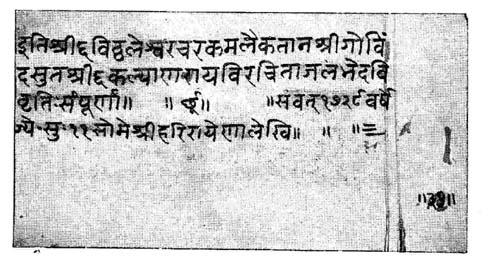 इतिश्री६विठ्ठलेश्वरचरकमलैकतानश्रीगोविं
दसुतश्री६कल्याणरायविरचिताजलभेदवि
वृतिःसंपूर्णा॥ ॥ श्री ॥ ॥संवत्१७२९वर्षे
ज्ये॰सु॰११सोमेश्रीहरिरायेणालेखि॥ ॥ ॥